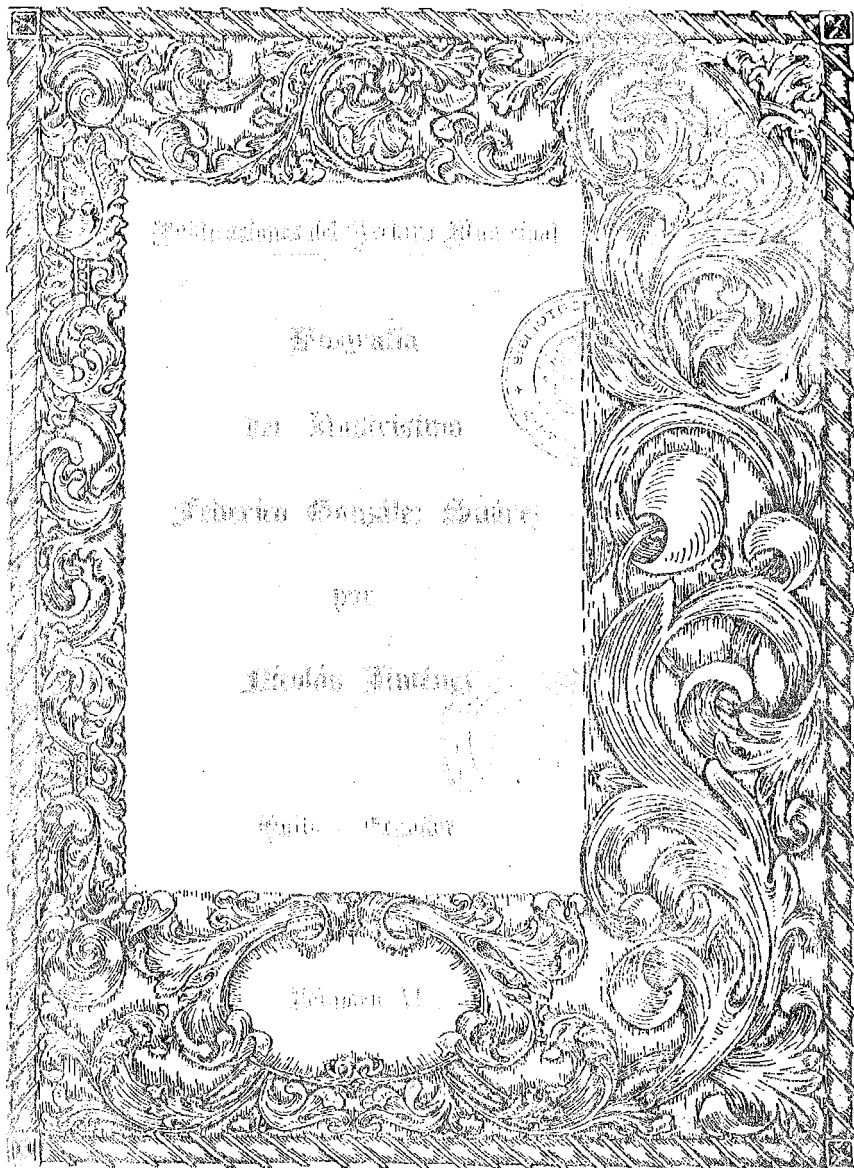 Publicaciones del Archivo Municipal
Biografía
del Ilustrísimo
Federico González Suárez
por
Nicolás Jiménez
Quito - Ecuador
Volumen VI